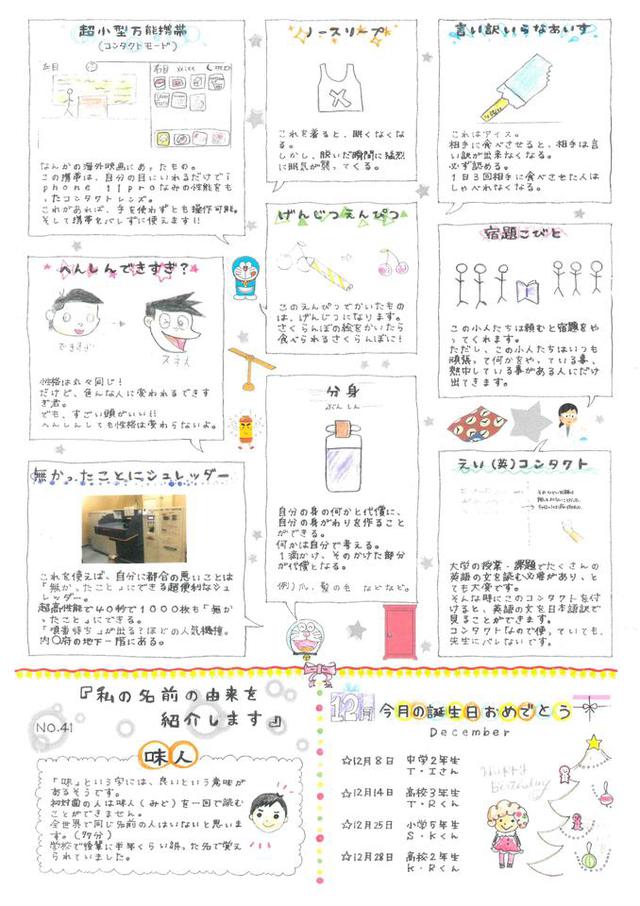 超小型万能携帯
(コンタクトモード)
右目
なんかの海外映画にあったもの。
この携帯は、自分の目にいれるだけでi
phone 11proなみの性能をも
ったコンタクトレンズ。
これがあれば、手を使わずとも操作可能。
そして携帯をバレずに使えます!!
ノースリープ
これを着ると、眠くなくな
る。
しかし、脱いだ瞬間に猛烈
に眠気が襲ってくる。
言い訳いらなあいす
これはアイス。
相手に食べさせると、相手は言
い訳が出来なくなる。
必ず認める。
1日3回相手に食べさせた人は
しゃべれなくなる。
へんしんできすぎ?
できすぎ
スネ人
性格は丸々同じ!
だけど、色んな人に変われるできす
ぎ君。
でも、すごい頭がいい!!
へんしんしても性格は変わらないよ。
げんじつえんぴつ
このえんぴつでかいたもの
は、げんじつになります。
さくらんぼの絵をかいたら
食べられるさくらんぼに!
宿題こびと
この小人たちは頼むと宿題をや
ってくれます。
ただし、この小人たちはいつも
頑張って何かをやっている事、
熱中している事がある人にだけ
出てきます。
無かったことにシュレッダー
これを使えば、自分に都合の悪いことは
「無かったこと」にできる超便利なシュ
レッダー。
超高性能で40秒で1000枚も「無か
ったこと」にできる。
「順番待ち」が出るほどの人気機種。
内〇府の地下一階にある。
分身
ぶんしん
自分の身の何かと代償に、
自分の身がわりを作ること
ができる。
何かは自分で考える。
1滴かけ、そのかけた部分
が代償となる。
例)爪、髪の毛 などなど。
えい(英)コンタクト
大学の授業・課題でたくさんの
英語の文を読む必要があり、と
ても大変です。
そんな時にこのコンタクトを付
けると、英語の文を日本語訳で
見ることができます。
コンタクトなので使っていても、
先生にバレないです。
『私の名前の由来を
紹介します』
NO.41
味人
「味」という字には、良いという意味が
あるそうです。
初対面の人は味人(みど)を一回で読む
ことができません。
全世界で同じ名前の人はいないと思いま
す。(多分)
学校で授業に半年くらい誤った名で覚え
られていました。
12月 今月の誕生日おめでとう
December
☆12月8日 中学2年生
T・Iさん
☆12月14日 高校3年生
T・Rくん
☆12月25日 小学5年生
S・Kくん
☆12月28日 高校2年生
K・Rくん
Happy
birthday